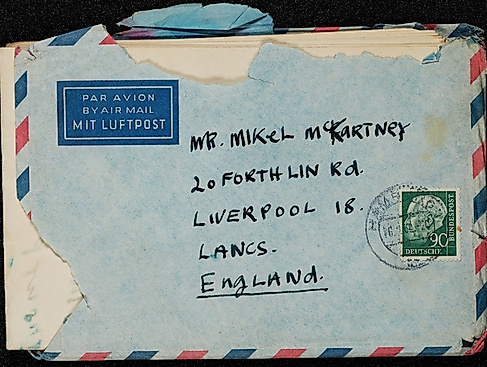 PAR AVION
BY AIR MAIL
MIT LUFTPOST
MR. MIKEL McKARTNEY
20 FORTHLIN Rd.
LIVERPOOL 18.
LANCS.
ENGLAND.
90
DEUTSCHE
BUNDESPOST